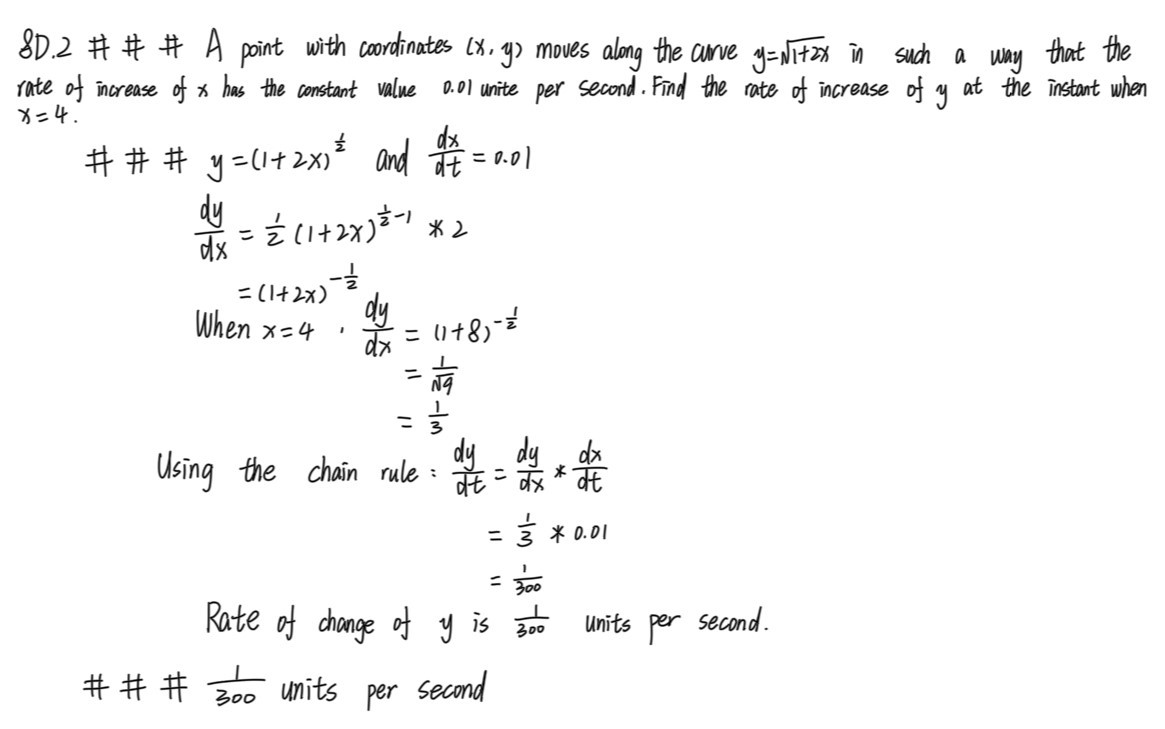 8D.2 # # # A point with coordinates (x, y) moves along the curve y=√1+2x in such a way that the
rate of increase of x has the constant value 0.01 unite per second. Find the rate of increase of y at the instant when
x=4.
# # # y=(1+2x)^(1/2) and dx/dt = 0.01
dy/dx = 1/2 (1+2x)^(1/2-1) * 2
= (1+2x)^(-1/2)
When x=4 , dy/dx = (1+8)^(-1/2)
= 1/√9
= 1/3
Using the chain rule : dy/dt = dy/dx * dx/dt
= 1/3 * 0.01
= 1/300
Rate of change of y is 1/300 units per second.
# # # 1/300 units per second